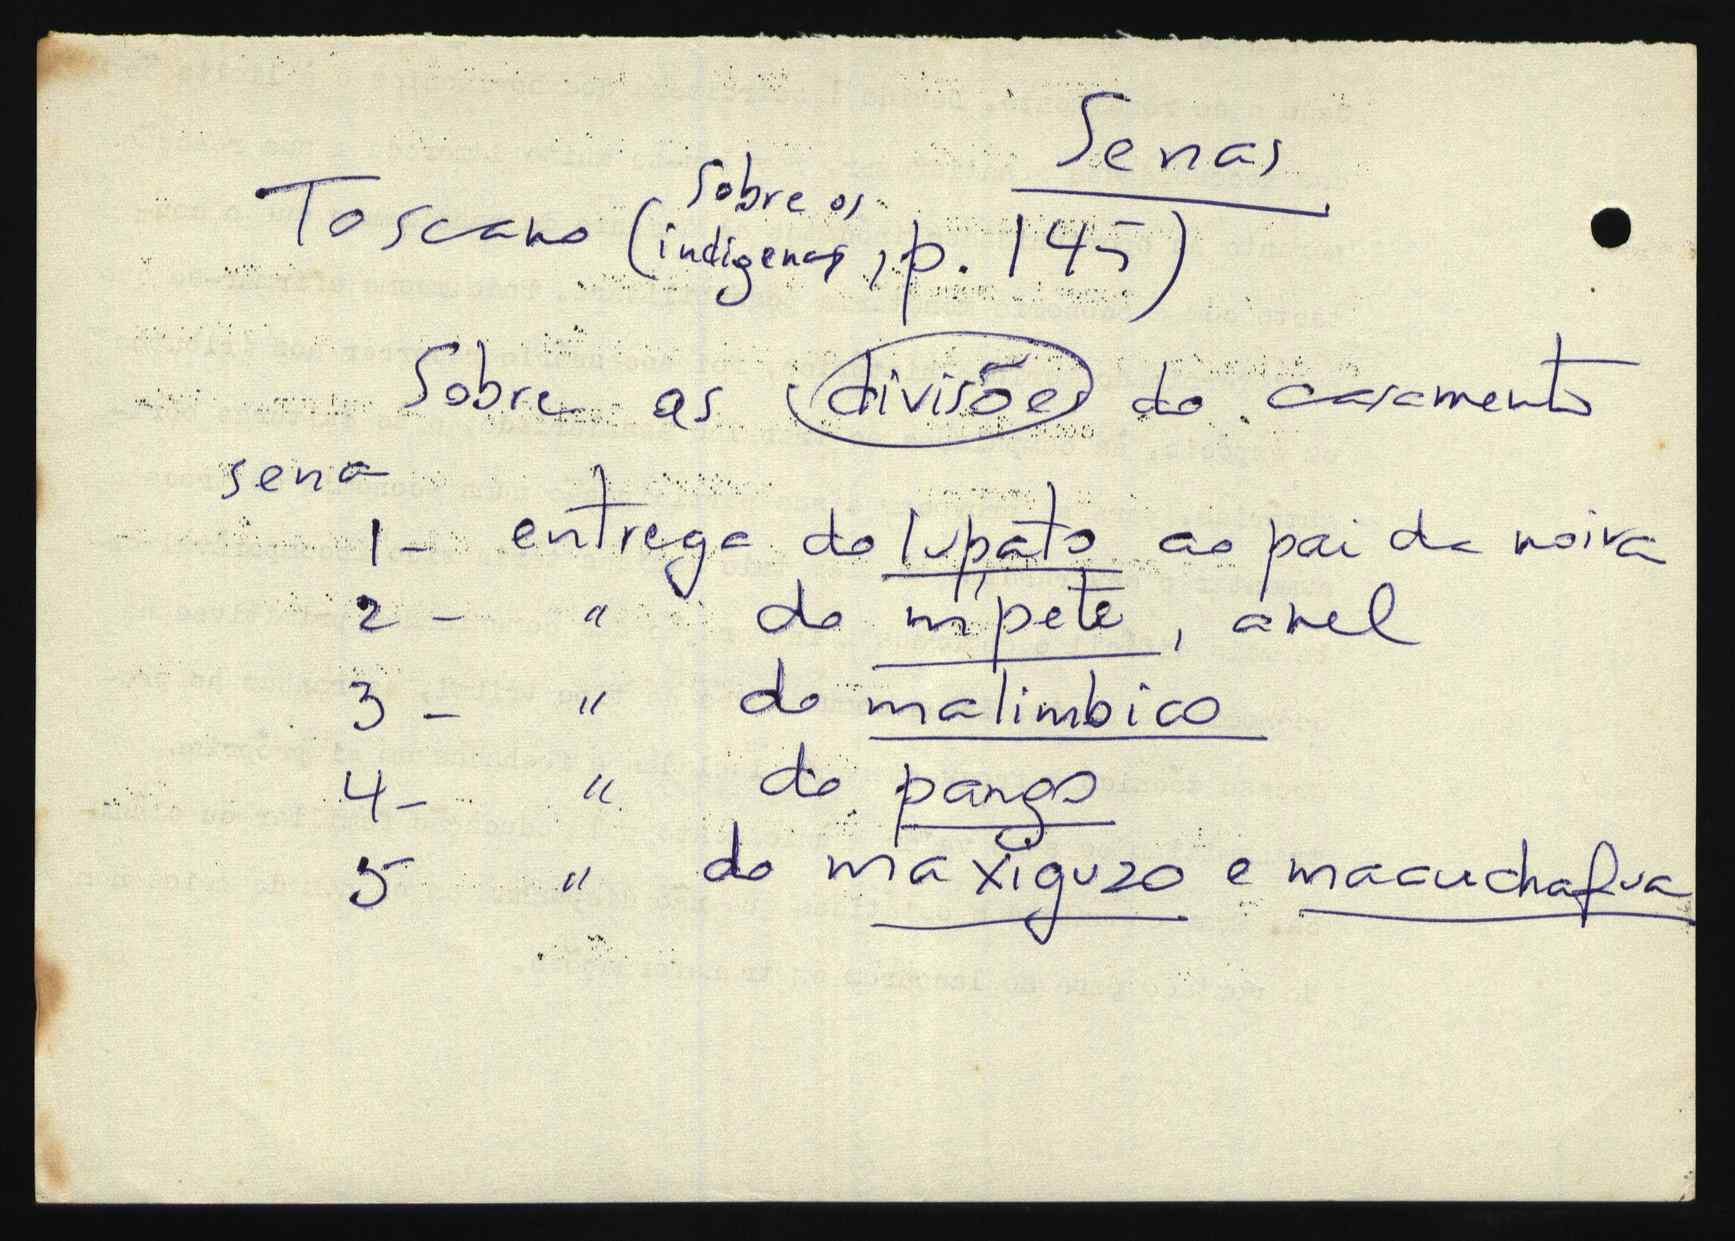 Senas
Toscano (Sobre os indigenas, p. 145)
Sobre as divisões do casamento
sena
1 - entrega do lupato ao pai da noiva
2 - " do m'pete, anel
3 - " do malimbico
4 - " do pango
5 " do maxiguzo e